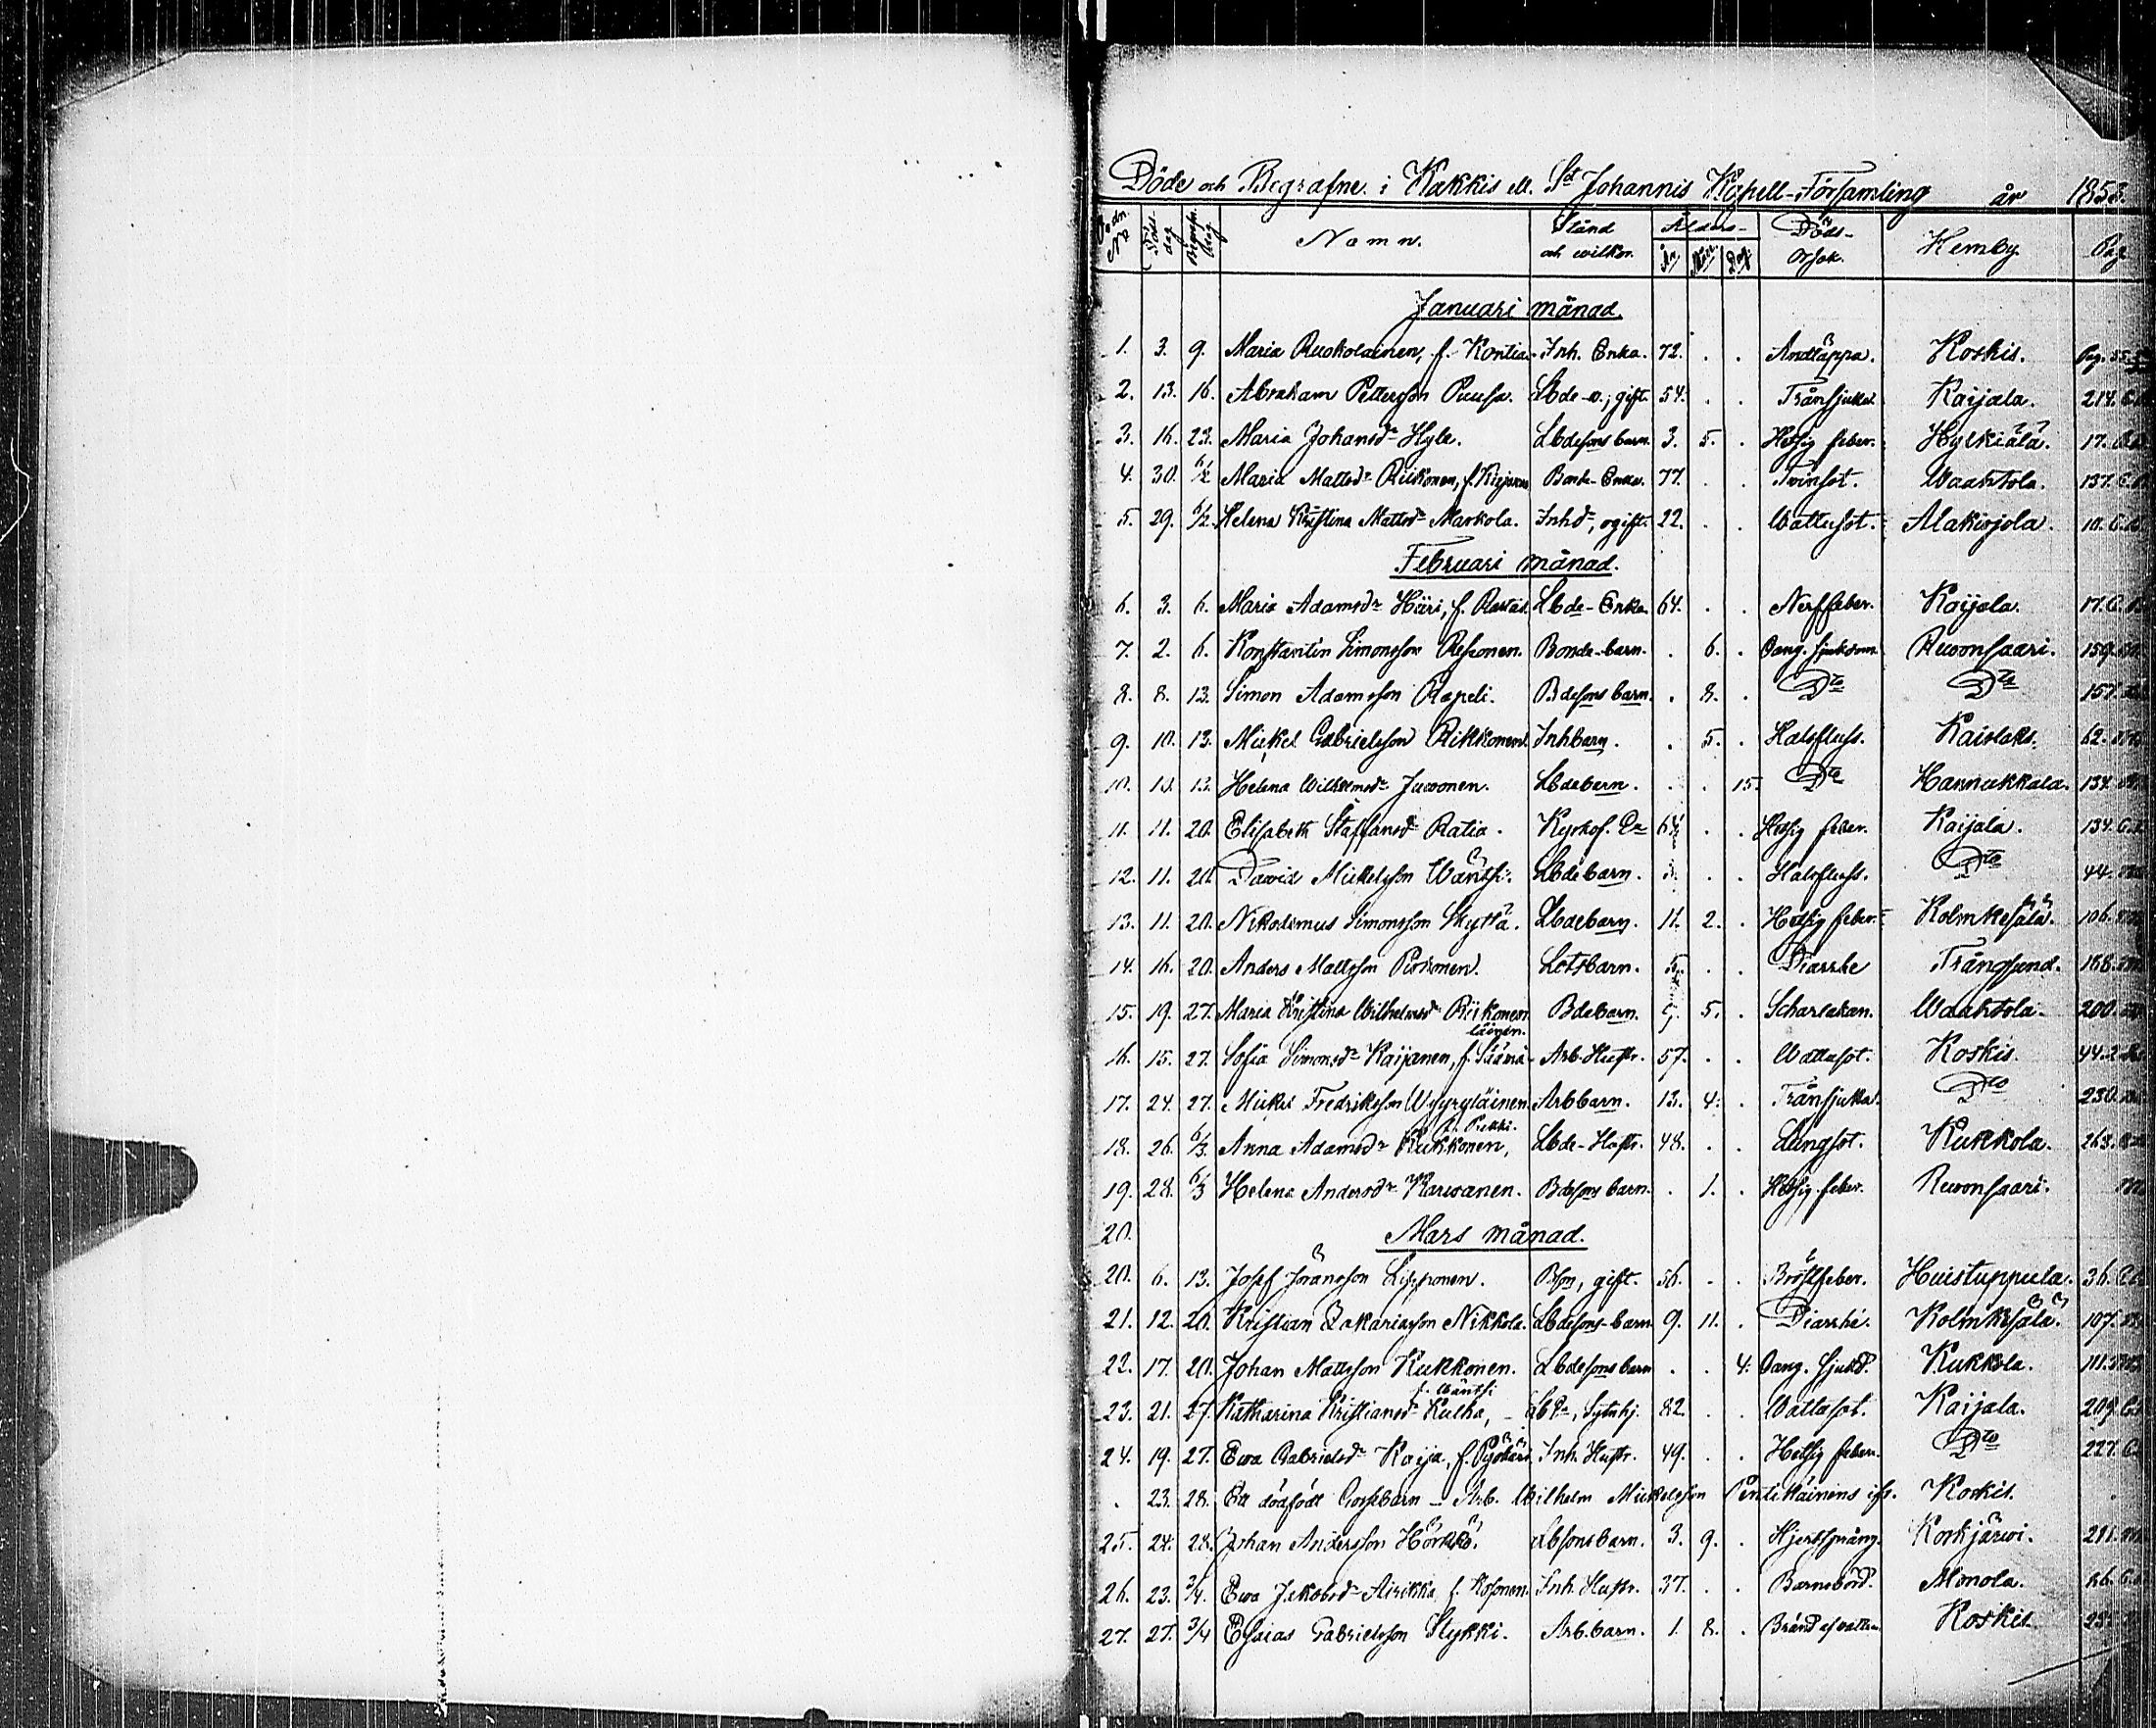 Döde och Begrafne i Kakkis ell. St Johannis Kapell-Församling år 1853.
Ordn. No Döds-dag Begrafn. dag Namn. Stånd och wilkor. Ålders- År. Mån. Dag. Döds-Orsak. Hemby. Pag.
Januari månad.
1. 3. 9. Maria Ruokolainen, f. Kontia. Inh. Enka. 72. . . Andtäppa. Koskis. Pag. 55.
2. 13. 16. Abraham Pettersson Puusa. Lbde-n, gift. 54. . . Trånsjuka. Kaijala. 214.
3. 16. 23. Maria Johansdr Hyle. Lbdesons barn. 3. 5. . Hetsig feber. Hyrkiälä. 17.
4. 30. 6/2 Maria Mattsdr Riikonen, f. Bonde-Enka. 77. . . Twinsot. Waahtola. 137.
5. 29. 6/2 Helena Kristina Mattsdr Markola. Inhdr, ogift. 22. . . Wattusot. Alakirjola. 10.
Februari månad.
6. 3. 6. Maria Adamsdr Hiiri, f. Rastas. Lbde-Enka. 64. . . Nerffeber. Kaijala. 17.
7. 2. 6. Konstantin Simonsson Peponen. Bonde-barn. . 6. . Oang. sjukdom. Rewonsaari. 159.
8. 8. 13. Simon Adamsson Rapeli. Bdesons barn. . 8. . Dto Dto 157.
9. 10. 13. Mickel Gabrielsson Rikkonen. Inhbarn. . 5. . Halsfluss. Kaislaks. 62.
10. 10. 13. Helena Wilhelmsdr Juwonen. Lbdebarn. . . 15. Dto Hannukkala. 134.
11. 11. 20. Elisabeth Staffansdr Ratia. 64. . . Hetsig feber. Kaijala. 134.
12. 11. 20. Dawid Mickelsson Wäntsi. Lbdebarn. 3. . . Halsfluss. Dto 44.
13. 11. 20. Nikodemus Simonsson Skyttä. Lbdebarn. 11. 2. . Hetsig feber. Kolmikesälä. 106.
14. 16. 20. Anders Mattsson Piskonen. Lotsbarn. 5. . . Diarrhe Trångsund. 188.
15. 19. 27. Maria Kristina Wilhelmsdr Riikonen. Bdebarn. 5. 5. . Scharlakan. Waahtola. 200.
16. 15. 27. Sofia Simonsdr Kaijanen, f. Säämä-läinen. Arb. Hustr. 57. . . Wattusot. Koskis. 44.
17. 24. 27. Mickel Fredriksson Wyyryläinen. Arbbarn. 13. 4. . Trånsjuka. Dto 230.
18. 26. 6/3 Anna Adamsdr Kukkonen, f. Pekki. Lbde-Hustr. 48. . . Lungsot. Kukkola. 263.
19. 28. 6/3 Helena Andersdr Karwanen. Bdesons barn. . 1. . Hetsig feber. Rewonsaari.
20. Mars månad.
20. 6. 13. Josef Jöransson Lipponen. Bson, gift. 56. . . Bröstfeber. Huistuppula. 36.
21. 12. 20. Kristian Zakariasson Nikkola. Lbdesons-barn 9. 11. . Diarrhé. Kolmikesälä. 107.
22. 17. 20. Johan Mattsson Kukkonen. Lbdesons barn . . 4. Oang. sjukd. Kukkola. 111.
23. 21. 27. Katharina Kristiansdr Kulha, f. Wäntsi Sytnhj. 82. . . Wattusot. Kaijala. 209.
24. 19. 27. Ewa Gabrielsdr Kaija, f. Pyökäri Inh. Hustr. 49. . . Hetsig feber. Dto 227.
. 23. 28. Ett dödfödt Gossebarn - Arb. Wilhelm Mickelsson Pentikäinens Koskis.
25. 24. 28. Johan Andersson Hörkkö. Lbsonsbarn. 3. 9. . Hjertsprång. Koskjärwi. 211.
26. 23. 3/4. Ewa Jakobsdr Airikka f. Kosonen. Inh. Hustr. 37. . . Barnsbörd. Monola. 26.
27. 27. 3/4 Esaias Gabrielsson Stykki. Arb.barn. 1. 8. . Bränd af watten. Koskis. 23.